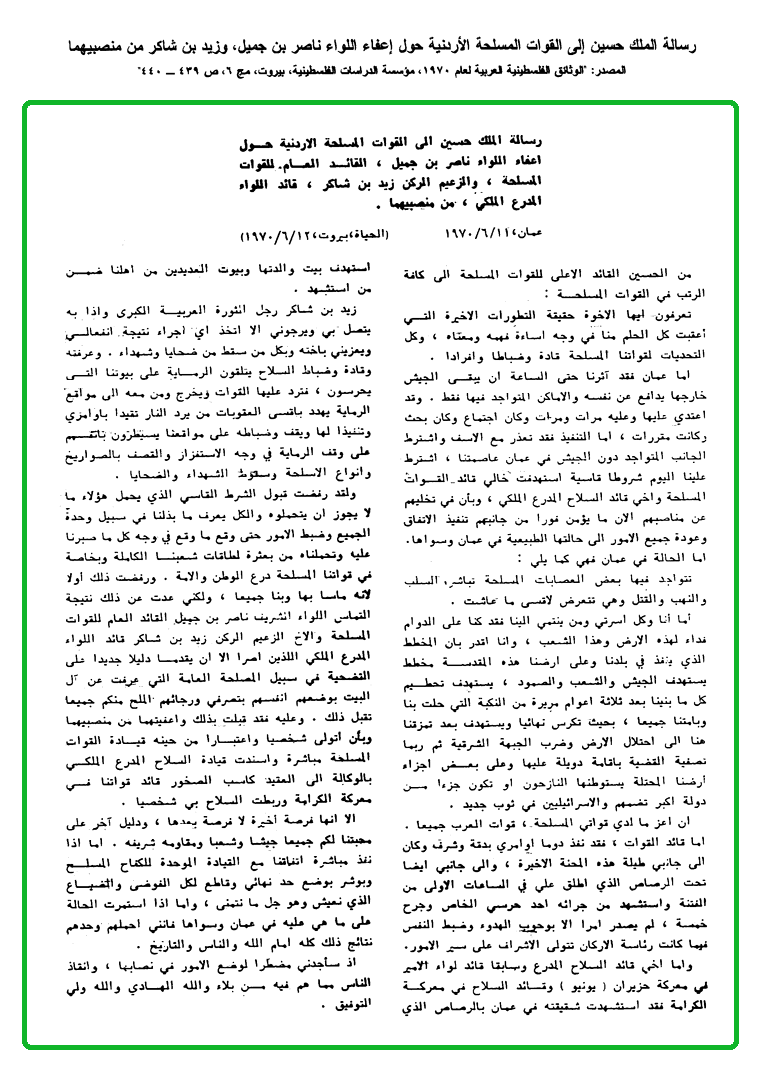 رسالة الملك حسين إلى القوات المسلحة الأردنية حول إعفاء اللواء ناصر بن جميل، وزيد بن شاكر من منصبيهما
المصدر: "الوثائق الفلسطينية العربية لعام ١٩٧٠، مؤسسة الدراسات الفلسطينية، بيروت، مج ٦، ص ٤٣٩ ــ ٤٤٠"
رسالة الملك حسين الى القوات المسلحة الاردنية حـول
اعفاء اللواء ناصر بن جميل ، القائـد العـام للقوات
المسلحة ، والزعيم الركن زيد بن شاكر ، قائد اللواء
المدرع الملكي ، من منصبيهما .
عمان، ١٩٧٠/٦/١١ (الحياة، بيروت، ١٩٧٠/٦/١٢)
من الحسين القائد الاعلى للقوات المسلحة الى كافة
الرتب في القوات المسلحـة :
تعرفون أيها الاخوة حقيقة التطورات الاخيرة التـي
أعقبت كل الحلم منا في وجه اساءة فهمه ومعناه ، وكل
التحديات لقواتنا المسلحة قادة وضباطا وافرادا .
اما عمان فقد آثرنا حتى الساعة ان يبقـى الجيش
خارجها يدافع عن نفسه والاماكن المتواجد فيها فقط . وقد
اعتدي عليها وعليه مرات ومرات وكان اجتماع وكان بحث
وكانت مقررات ، اما التنفيذ فقد تعذر مع الاسف واشترط
الجانب المتواجد دون الجيش في عمان عاصمتنا ، اشترط
علينا اليوم شروطا قاسية استهدفت خالي قائد القـوات
المسلحة واخي قائد السلاح المدرع الملكي ، وبأن في تخليهم
عن مناصبهم الان ما يؤمن فورا من جانبهم تنفيذ الاتفاق
وعودة جميع الامور الى حالتها الطبيعية في عمان وسواها.
اما الحالة في عمان فهي كما يلي :
تتواجد فيها بعض العصابات المسلحة تباشر السلب
والنهب والقتل وهي تتعرض لاقسى ما عاشت .
أما أنا وكل اسرتي ومن ينتمي الينا فقد كنا على الدوام
فداء لهذه الارض وهذا الشعب ، وانا اقدر بان المخطط
الذي ينفذ في بلدنا وعلى ارضنا هذه المقدسـة مخطط
يستهدف الجيش والشعب والصمود ، يستهدف تحطيـم
كل ما بنينا بعد ثلاثة اعوام مريرة من النكبة التي حلت بنا
وبامتنا جميعا ، بحيث تكرس نهائيا ويستهدف بعد تمزقنا
هنا الى احتلال الارض وضرب الجبهة الشرقية ثم ربما
تصفية القضية باقامة دويلة عليها وعلى بعـض اجزاء
أرضنا المحتلة يستوطنها النازحون او تكون جزءا مـن
دولة اكبر تضمهم والاسرائيليين في ثوب جديد .
ان اعز ما لدي قواتي المسلحة ، قوات العرب جميعا .
اما قائد القوات ، فقد نفذ دوما اوامري بدقة وشرف وكان
الى جانبي طيلة هذه المحنة الاخيرة ، والى جانبي ايضا
تحت الرصاص الذي اطلق علي في الساعات الاولى من
الفتنة واستشهد من جرائه احد حرسي الخاص وجرح
خمسة ، لم يصدر امرا الا بوجوب الهدوء وضبط النفس
فيما كانت رئاسة الاركان تتولى الاشراف على سير الامور.
واما اخي قائد السلاح المدرع وسابقا قائد لواء الامير
في معركة حزيران ( يونيو ) وقـائد السلاح في معركـة
الكرامة فقد استشهدت شقيقته في عمان بالرصاص الذي
استهدف بيت والدتها وبيوت العديدين من اهلنا ضمـن
من استشهد .
زيد بن شاكر رجل الثورة العربيـة الكبرى واذا به
يتصل بي ويرجوني الا اتخذ اي اجراء نتيجة انفعالـي
ويعزيني باخته وبكل من سقط من ضحايا وشهداء . وعرفته
وقادة وضباط السلاح يتلقون الرمايـة على بيوتنا التـي
يحرسون ، فترد عليها القوات ويخرج ومن معه الى مواقع
الرماية يهدد باقسى العقوبات من يرد النار تقيدا باوامري
وتنفيذا لها ويقف وضباطه على مواقعنا يسيطرون بانفسهم
على وقف الرماية في وجه الاستفزاز والقصف بالصواريخ
وانواع الاسلحة وسقوط الشهداء والضحايا .
ولقد رفضت قبول الشرط القاسي الذي يحمل هؤلاء ما
لا يجوز ان يتحملوه والكل يعرف ما بذلنا في سبيل وحدة
الجميع وضبط الامور حتى وقع ما وقع في وجه كل ما صبرنا
عليه وتحملناه من بعثرة لطاقات شعبنـا الكاملة وبخاصة
في قواتنا المسلحة درع الوطن والامة . ورفضت ذلك أولا
لانه ماسا بها وبنا جميعا ، ولكني عدت عن ذلك نتيجة
التماس اللواء الشريف ناصر بن جميل القائد العام للقوات
المسلحة والاخ الزعيم الركن زيد بن شاكر قائد اللواء
المدرع الملكي اللذين اصرا الا ان يقدمـا دليلا جديدا على
التضحية في سبيل المصلحة العامة التي عرفت عن آل
البيت بوضعهم انفسهم بتصرفي ورجائهم الملح منكم جميعا
تقبل ذلك . وعليه فقد قبلت بذلك واعفيتهما من منصبيهما
وبأن أتولى شخصيـا واعتبـارا من حينه قيـادة القوات
المسلحة مباشرة واسندت قيادة السلاح المدرع الملكـي
بالوكالة الى العقيد كاسب الصخور قائد قواتنا فـي
معركة الكرامة وربطت السلاح بي شخصيا .
الا انها فرصة أخيرة لا فرصة بعدها ، ودليل آخر على
محبتنا لكم جميعا جيشـا وشعبا ومقاومه شريفه . اما اذا
نفذ مباشرة اتفاقنا مع القيادة الموحدة للكفاح المسلـح
وبوشر بوضع حد نهائي وقاطع لكل الفوضى والضيـاع
الذي نعيش وهو جل ما نتمنى ، واما اذا استمرت الحالة
على ما هي عليه في عمان وسواها فانني احملهم وحدهم
نتائج ذلك كله امام الله والناس والتاريخ .
اذ سأجدني مضطرا لوضع الامور في نصابها ، وانقاذ
الناس مما هم فيه مـن بلاء والله الهـادي والله ولي
التوفيق .